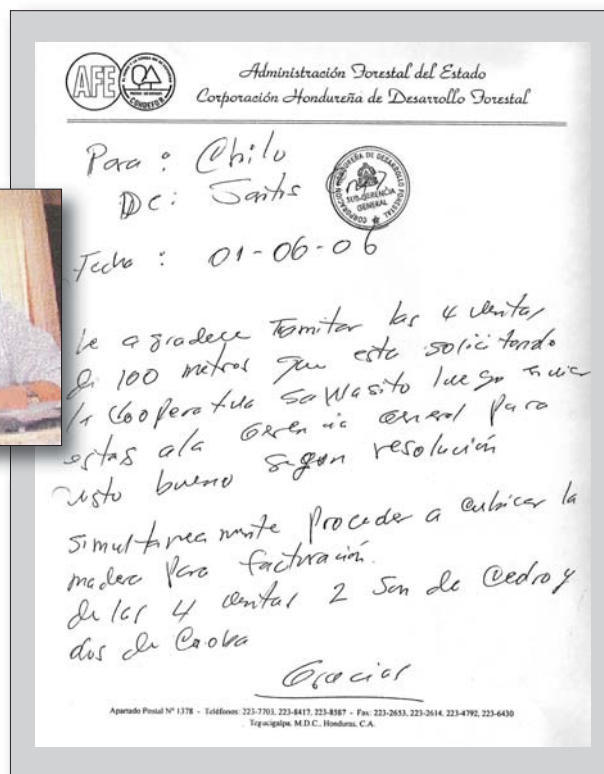 AFE
COHDEFOR
Administración Forestal del Estado
Corporación Hondureña de Desarrollo Forestal
Para : Chilo
De : Santos
CORPORACION HONDUREÑA DE DESARROLLO FORESTAL
SUB-GERENCIA
GENERAL
Fecha : 01-06-06
Le agradece Tramitar las 4 ventas
de 100 metros que esta solicitando
la Cooperativa Sawasito luego enviar
estas a la Gerencia General para
visto bueno segun resolución
simultaneamente Proceder a cubicar la
madera Para facturación.
de las 4 ventas 2 son de Cedro y
dos de Caoba
Gracias
Apartado Postal Nº 1378 - Teléfonos: 223-7703, 223-8417, 223-8587 - Fax: 223-2653, 223-2614, 223-4792, 223-6430
Tegucigalpa, M.D.C., Honduras, C.A.